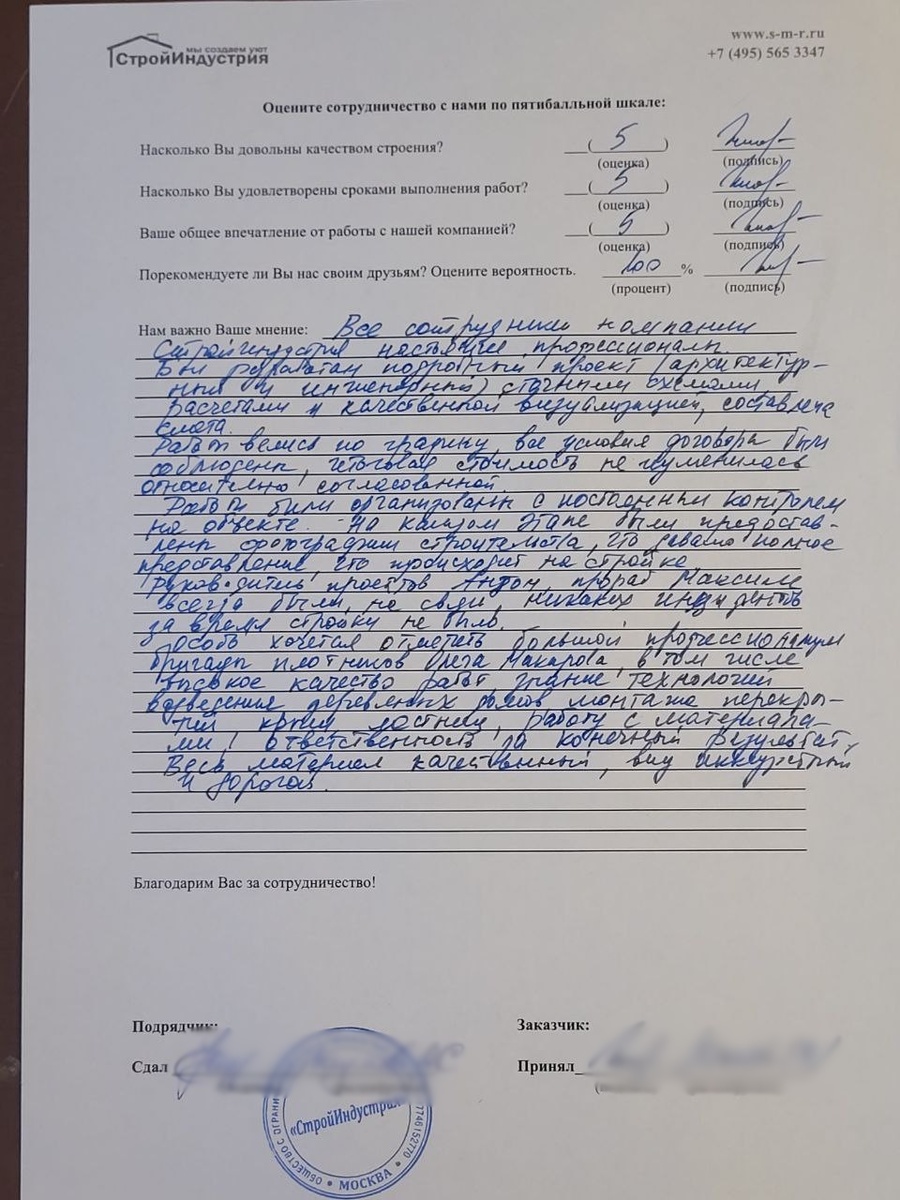 мы создаем уют
СтройИндустрия
www.s-m-r.ru
+7 (495) 565 3347
Оцените сотрудничество с нами по пятибалльной шкале:
Насколько Вы довольны качеством строения? ( 5 )
(оценка) (подпись)
Насколько Вы удовлетворены сроками выполнения работ? ( 5 )
(оценка) (подпись)
Ваше общее впечатление от работы с нашей компанией? ( 5 )
(оценка) (подпись)
Порекомендуете ли Вы нас своим друзьям? Оцените вероятность. 100 %
(процент) (подпись)
Нам важно Ваше мнение: Все сотрудники компании
Стройиндустрия настоящие профессионалы.
Был разработан подробный проект (архитектур-
ный и инженерный) с точными схемами,
расчетами и качественной визуализацией, составлена
смета.
Работы велись по графику, все условия договора были
соблюдены, итоговая стоимость не изменилась
относительно согласованной.
Работы были организованы с постоянным контролем
на объекте. На каждом этапе были предостав-
лены фотографии строительства, что давало полное
представление, что происходит на стройке
Руководитель проектов Антон, прораб Максим
всегда были на связи, никаких инцидентов
за время стройки не было.
Особо хочется отметить большой профессионализм
бригады плотников Олега Макарова, в том числе
высокое качество работ знание технологий
возведения деревянных домов монтажа перекры-
тий крыши лестниц, работу с материала-
ми, ответственность за конечный результат.
Весь материал качественный, вид аккуратный
и дорогой.
Благодарим Вас за сотрудничество!
Подрядчик:
Заказчик:
Сдал
Принял
«СтройИндустрия»
• МОСКВА •
7746152770
ОБЩЕСТВО С ОГРАНИ